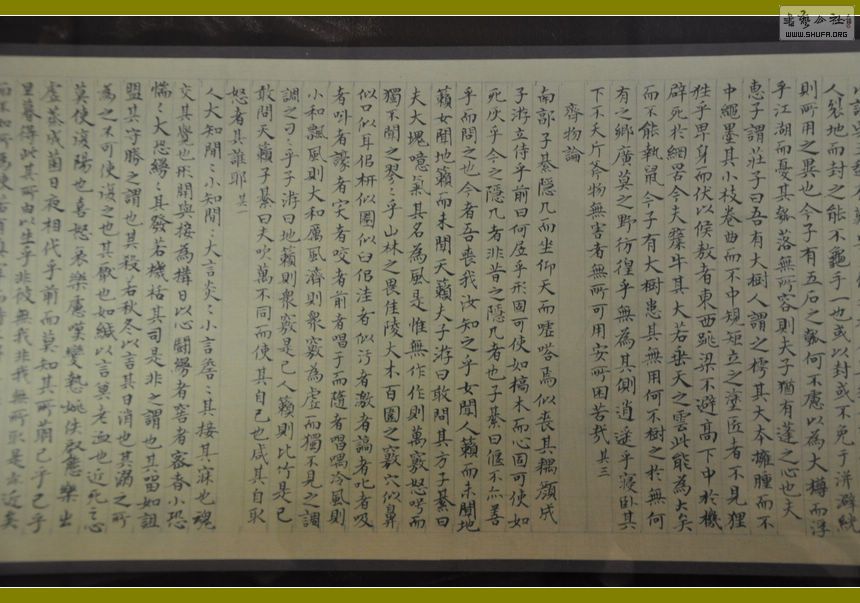 人裂地而封之能不龜手一也或以封或不免于洴澼絖
則所用之異也今子有五石之瓠何不慮以為大樽而浮
乎江湖而憂其瓠落無所容則夫子猶有蓬之心也夫
惠子謂莊子曰吾有大樹人謂之樗其大本擁腫而不
中繩墨其小枝卷曲而不中規矩立之塗匠者不見狸
狌乎卑身而伏以候敖者東西跳梁不避高下中於機
辟死於網罟今夫斄牛其大若垂天之雲此能為大矣
而不能執鼠今子有大樹患其無用何不樹之於無何
有之鄉廣莫之野彷徨乎無為其側逍遙乎寢臥其
下不夭斤斧物無害者無所可用安所困苦哉 其三
齊物論
南郭子綦隱几而坐仰天而噓嗒焉似喪其耦顏成
子游立侍乎前曰何居乎形固可使如槁木而心固可使如
死灰乎今之隱几者非昔之隱几者也子綦曰偃不亦善
乎而問之也今者吾喪我汝知之乎女聞人籟而未聞地
籟女聞地籟而未聞天籟夫子游曰敢問其方子綦曰
夫大塊噫氣其名為風是惟無作作則萬竅怒呺而
獨不聞之翏〻乎山林之畏佳陵大木百圍之竅穴似鼻
似口似耳佀枅似圈似臼佀洼者似污者激者謞者叱者吸
者叫者譹者宎者咬者前者唱于而隨者唱喁冷風則
小和飄風則大和厲風濟則眾竅為虛而獨不見之調
調之刁〻乎子游曰地籟則眾竅是已人籟則比竹是已
敢問天籟子綦曰夫吹萬不同而使其自己也咸其自取
怒者其誰耶 其一
人大知閒〻小知閒〻大言炎〻小言詹〻其接其寐也魂
交其覺也形開與接為構日以心鬬縵者窖者密者小恐
惴〻大恐縵〻其發若機栝其司是非之謂也其留如詛
盟其守勝之謂也其殺若秋冬以言其日消也其溺之所
為之不可使復之也其厭也如緘以言其老洫也近死之心
莫使復陽也喜怒哀樂慮嘆變慹姚佚啟態樂出
虛蒸成菌日夜相代乎前而莫知其所萌已乎已乎
旦暮得此其所由以生乎非彼無我非我無所取是亦近矣
書藝公社
WWW.SHUFA.ORG